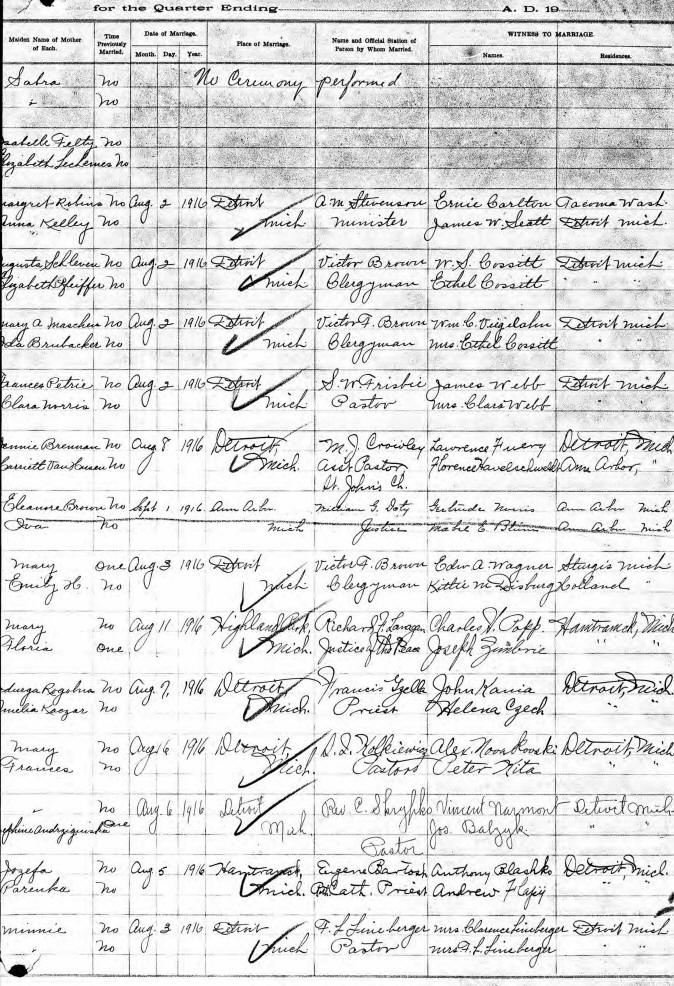 for the Quarter Ending A. D. 19
Maiden Name of Mother of Each. Time Previously Married. Date of Marriage. Month. Day. Year. Place of Marriage. Name and Official Station of Person by Whom Married. WITNESS TO MARRIAGE. Names. Residences.
Sabra no No Ceremony performed
" no
Felty no
no
Robins no Aug. 2 1916 Detroit A. M. Stevenson Ernie Carlton Tacoma Wash.
Anna Kelley no Mich Minister James W. Scott Detroit Mich.
no Aug. 2 1916 Detroit Victor Brown W. S. Cossitt Detroit Mich
Pfeiffer no Mich Clergyman Ethel Cossitt " "
Mary A no Aug 2 1916 Detroit Victor F. Brown Wm C. Detroit Mich
Brubacker no Mich Clergyman Mrs. Ethel Cossitt " "
Frances Petrie no Aug. 2 1916 Detroit S. W Frisbie James Webb Detroit Mich
Clara Norris no Mich Pastor Mrs. Clara Webb
Brennan no Aug 8 1916 Detroit, M. J. Crowley Lawrence Detroit, Mich
no Mich. Asst Pastor Florence Ann Arbor, "
St. John's Ch.
Eleanore Brown no Sept 1 1916 Ann Arbor William G. Doty Gertrude Ann Arbor Mich
Iva no Mich Justice Mabel E. Ann Arbor Mich
Mary one Aug. 3 1916 Detroit Victor F. Brown Edw A Wagner Sturgis Mich
Emily H. no Mich Clergyman Kittie M Holland "
Mary no Aug 11 1916 Highland Park, Richard F. Charles V. Popp. Hamtramck, Mich
Floria one Mich. Justice of the Peace Joseph " "
no Aug 7, 1916 Detroit Francis John Kania Detroit, Mich.
Amelia Kaczar no Mich. Priest Helena Czech " "
Mary no Aug 6 1916 Detroit, Alex. Detroit, Mich
Frances no Mich. Pastor Peter Kita " "
" no Aug. 6 1916 Detroit Rev. C. Skrypko Vincent Detroit Mich
one Mich. Jos. Balzyk. " "
Pastor
Jozefa no Aug 5 1916 Hamtramck, Eugene Bartosh Anthony Blashko Detroit, Mich.
Parenka no Mich. Cath. Priest Andrew " "
Minnie no Aug. 3 1916 Detroit F. L Lineberger Mrs. Clarence Lineberger Detroit Mich
" no Mich Pastor Mrs. F. L. Lineberger " "